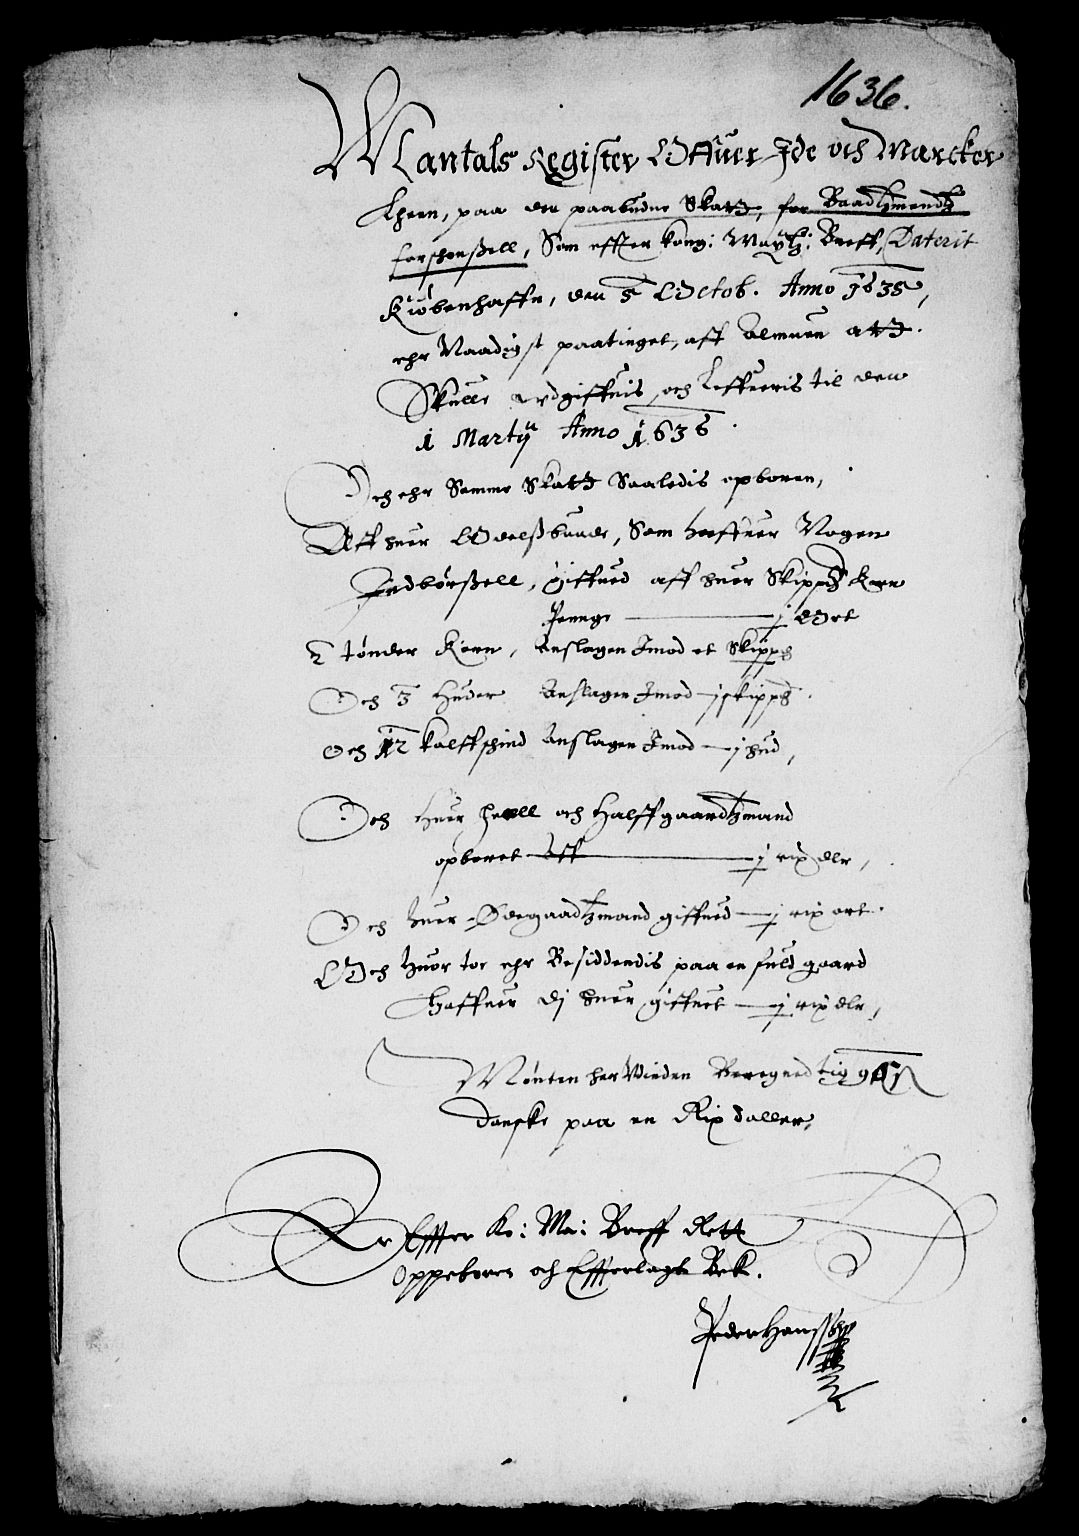 1636.
Mantals Register Offuer Ide och Marcker
Theen, paa den paabudne Skatt, for Baadtzmendtz
forschonßell, Som effter kong: Maytz: Breff, Daterit
Kiöbenhaffn, den 5 Octob. Anno 1635,
ehr Naadigst paatinget, aff Almuen att
Skulle udgiffuis, och Leffueris til den
1 Martij Anno 1636.
Och ehr Samme Skatt Saaledis opboren,
Aff huer Odelßbunde, Som haffuer Nogen
Jndbörßell, giffued aff huer Skippd Korn
Penge — j Ort
2 tönder Korn, Anslagen Imod et Skippd
Och 3 Huder Anslagen Imod — j skippd.
Och 12 kalffschind Anslagen Imod — j hud,
Och Huer heell och Halffgaardtzmand
opboret Aff — j rix dlr,
Och huer Ödegaardtzmand giffued — j rix ort.
Och huor toe ehr Besiddendis paa en fuld gaard
Haffuer dj huer giffuet — j rix dlr,
Mönten her Vdinden Beregned
danske paa en Rix daller,
Er Effter Ko: Ma: Breff Rett
Oppeboren och Efferlagt Bek.
Peder Hanssen